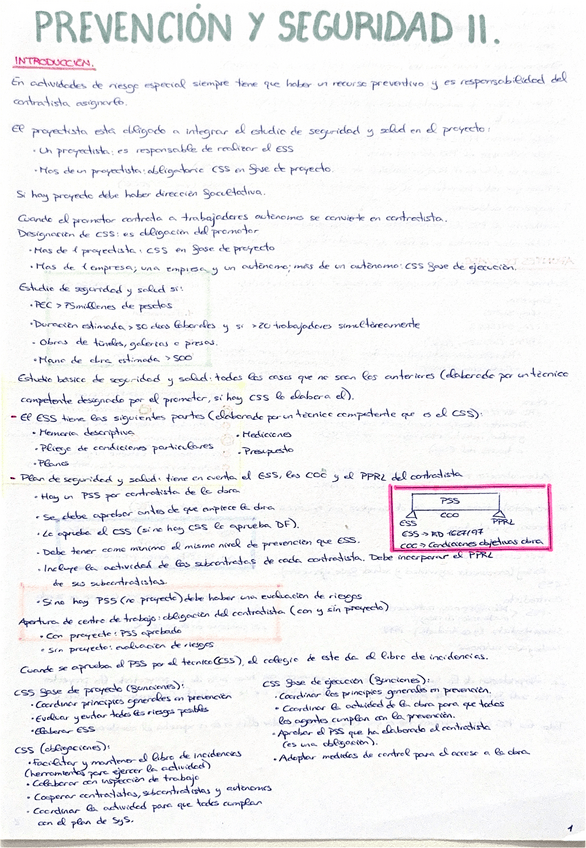 PREVENCIÓN Y SEGURIDAD II.
INTRODUCCIÓN.
En actividades de riesgo especial siempre tiene que haber un recurso preventivo y es responsabilidad del
contratista asignarlo.
El proyectista esta obligado a integrar el estudio de seguridad y salud en el proyecto:
· Un proyectista: es responsable de realizar el ESS
· Mas de un proyectista: obligatorio CSS en fase de proyecto.
Si hay proyecto debe haber dirección facultativa.
Cuando el promotor contrata a trabajadores autónomos se convierte en contratista.
Designación de CSS: es obligación del promotor
· Mas de 1 proyectista: CSS en fase de proyecto
· Mas de 1 empresa; una empresa y un autónomo; mas de un autónomo: CSS fase de ejecución.
Estudio de seguridad y salud si:
· PEC > 75 millones de pesetas
· Duración estimada > 30 días laborales y si > 20 trabajadores simultáneamente
· Obras de túneles, galerías o presas.
· Mano de obra estimada > 500
Estudio básico de seguridad y salud: todos los casos que no sean los anteriores (elaborado por un técnico
competente designado por el promotor, si hay CSS lo elabora el).
- El ESS tiene las siguientes partes (elaborado por un técnico competente que es el CSS):
· Memoria descriptiva · Mediciones
· Pliego de condiciones particulares · Presupuesto
· Planos
- Plan de seguridad y salud: tiene en cuenta el ESS, las COC y el PPRL del contratista
· Hay un PSS por contratista de la obra
· Se debe aprobar antes de que empiece la obra
· Lo aprueba el CSS (si no hay CSS lo aprueba DF).
· Debe tener como mínimo el mismo nivel de prevención que ESS.
· Incluye la actividad de las subcontratas de cada contratista. Debe incorporar el PPRL
de sus subcontratistas.
· Si no hay PSS (no proyecto) debe haber una evaluación de riesgos
PSS
COO
ESS PPRL
ESS → RD 1627/97
COC → Condiciones objetivas obra
Apertura de centro de trabajo: obligación del contratista (con y sin proyecto)
· Con proyecto: PSS aprobado
· Sin proyecto: evaluación de riesgos
Cuando se aprueba el PSS por el técnico (CSS), el colegio de este da el libro de incidencias.
CSS fase de proyecto (funciones):
· Coordinar principios generales en prevención
· Evaluar y evitar todos los riesgos posibles
· Elaborar ESS
CSS (obligaciones):
· Facilitar y mantener el libro de incidencias
(herramientas para ejercer la actividad)
· Colaborar con inspección de trabajo
· Cooperar contratistas, subcontratistas y autónomos
· Coordinar la actividad para que todos cumplan
con el plan de SyS.
CSS fase de ejecución (funciones):
· Coordinar los principios generales en prevención.
· Coordinar la actividad de la obra para que todos
los agentes cumplan con la prevención.
· Aprobar el PSS que ha elaborado el contratista
(es una obligación).
· Adoptar medidas de control para el acceso a la obra
1